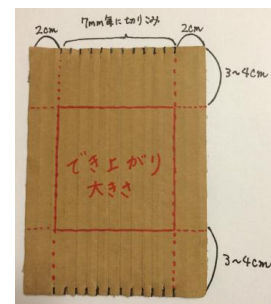 2cm
7mm毎に切りこみ
2cm
3~4cm
でき上がり
大きさ
3~4cm